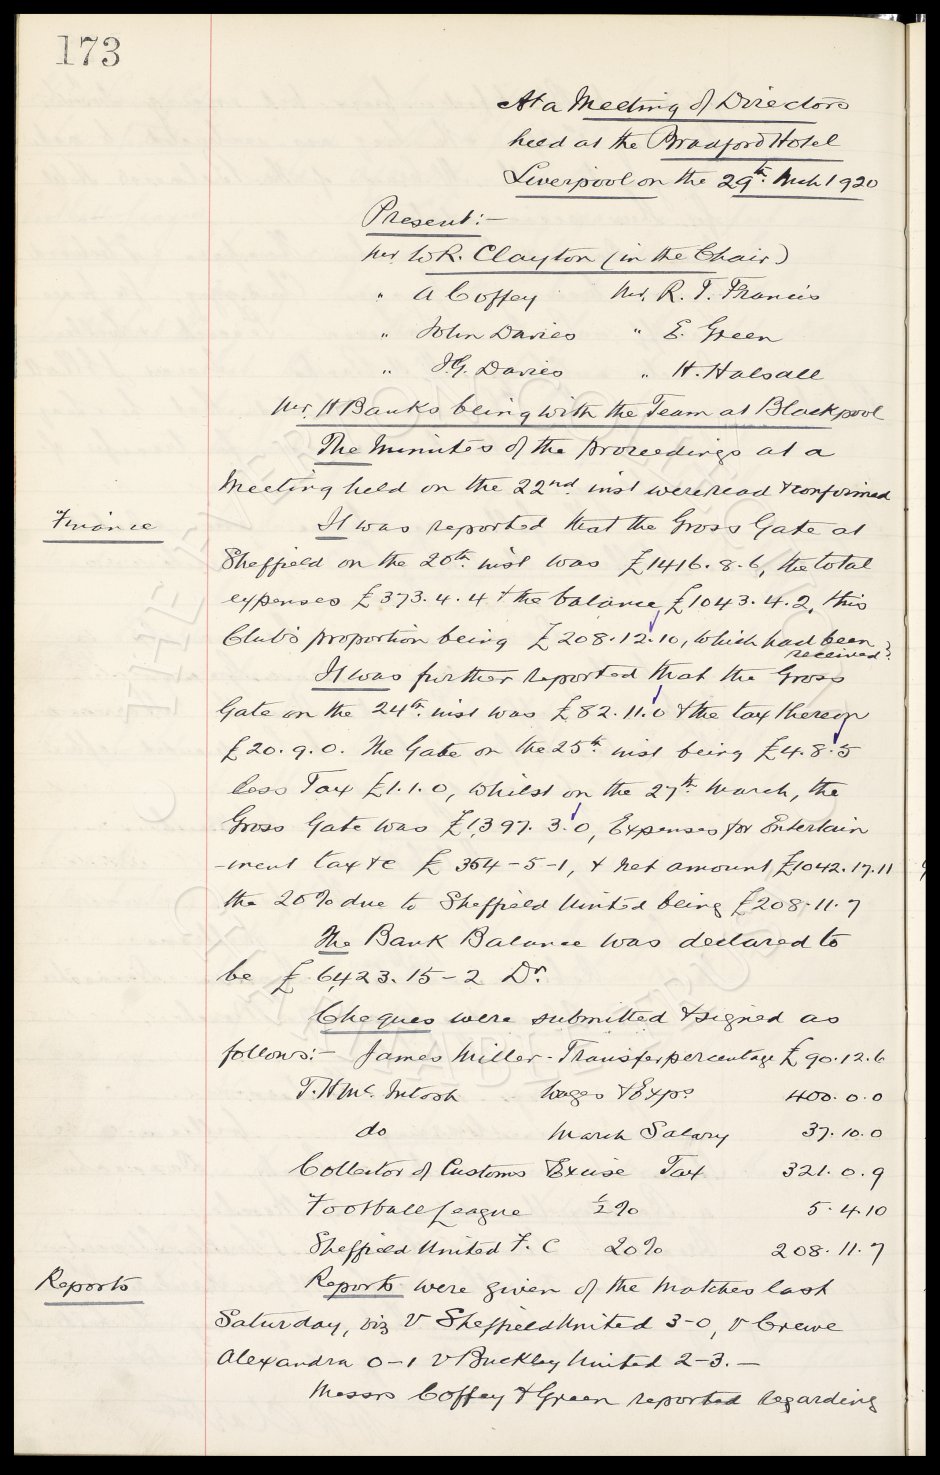 173
At a Meeting of Directors
held at the Bradford Hotel
Liverpool on the 29th. Mch 1920
Present:-
Mr W.R. Clayton (in the Chair)
" A Coffey Mr. R. T. Francis
" John Davies " E. Green
" J.G. Davies " H. Halsall
Mr. H Banks being with the Team at Blackpool
The Minutes of the proceedings at a
Meeting held on the 22nd. inst were read & confirmed
Finance It was reported that the Gross Gate at
Sheffield on the 20th. inst was £1416.8.6, the total
expenses £373.4.4 & the balance £1043.4.2, this
Club's proportion being £208.12.10, which had been
received.
It was further reported that the Gross
Gate on the 24th. inst was £82.11.0 & the tax thereon
£20.9.0. The Gate on the 25th. inst being £4.8.5
less Tax £1.1.0, whilst on the 27th. March, the
Gross Gate was £1,397.3.0, Expenses for Entertain
-ment tax &c £354-5-1, & net amount £1042.17.11
the 20% due to Sheffield United being £208.11.7
The Bank Balance was declared to
be £6,423.15-2 Dr.
Cheques were submitted & signed as
follows:- James Miller - Transfer percentage £90.12.6
T.H Mc. Intosh Wages & Exps 400.0.0
do March Salary 37.10.0
Collector of Customs & Excise Tax 321.0.9
Football League ½% 5.4.10
Sheffield United F.C 20% 208.11.7
Reports Reports were given of the Matches last
Saturday, viz v Sheffield United 3-0, v Crewe
Alexandra 0-1 v Buckley United 2-3.-
Messrs Coffey & Green reported regarding